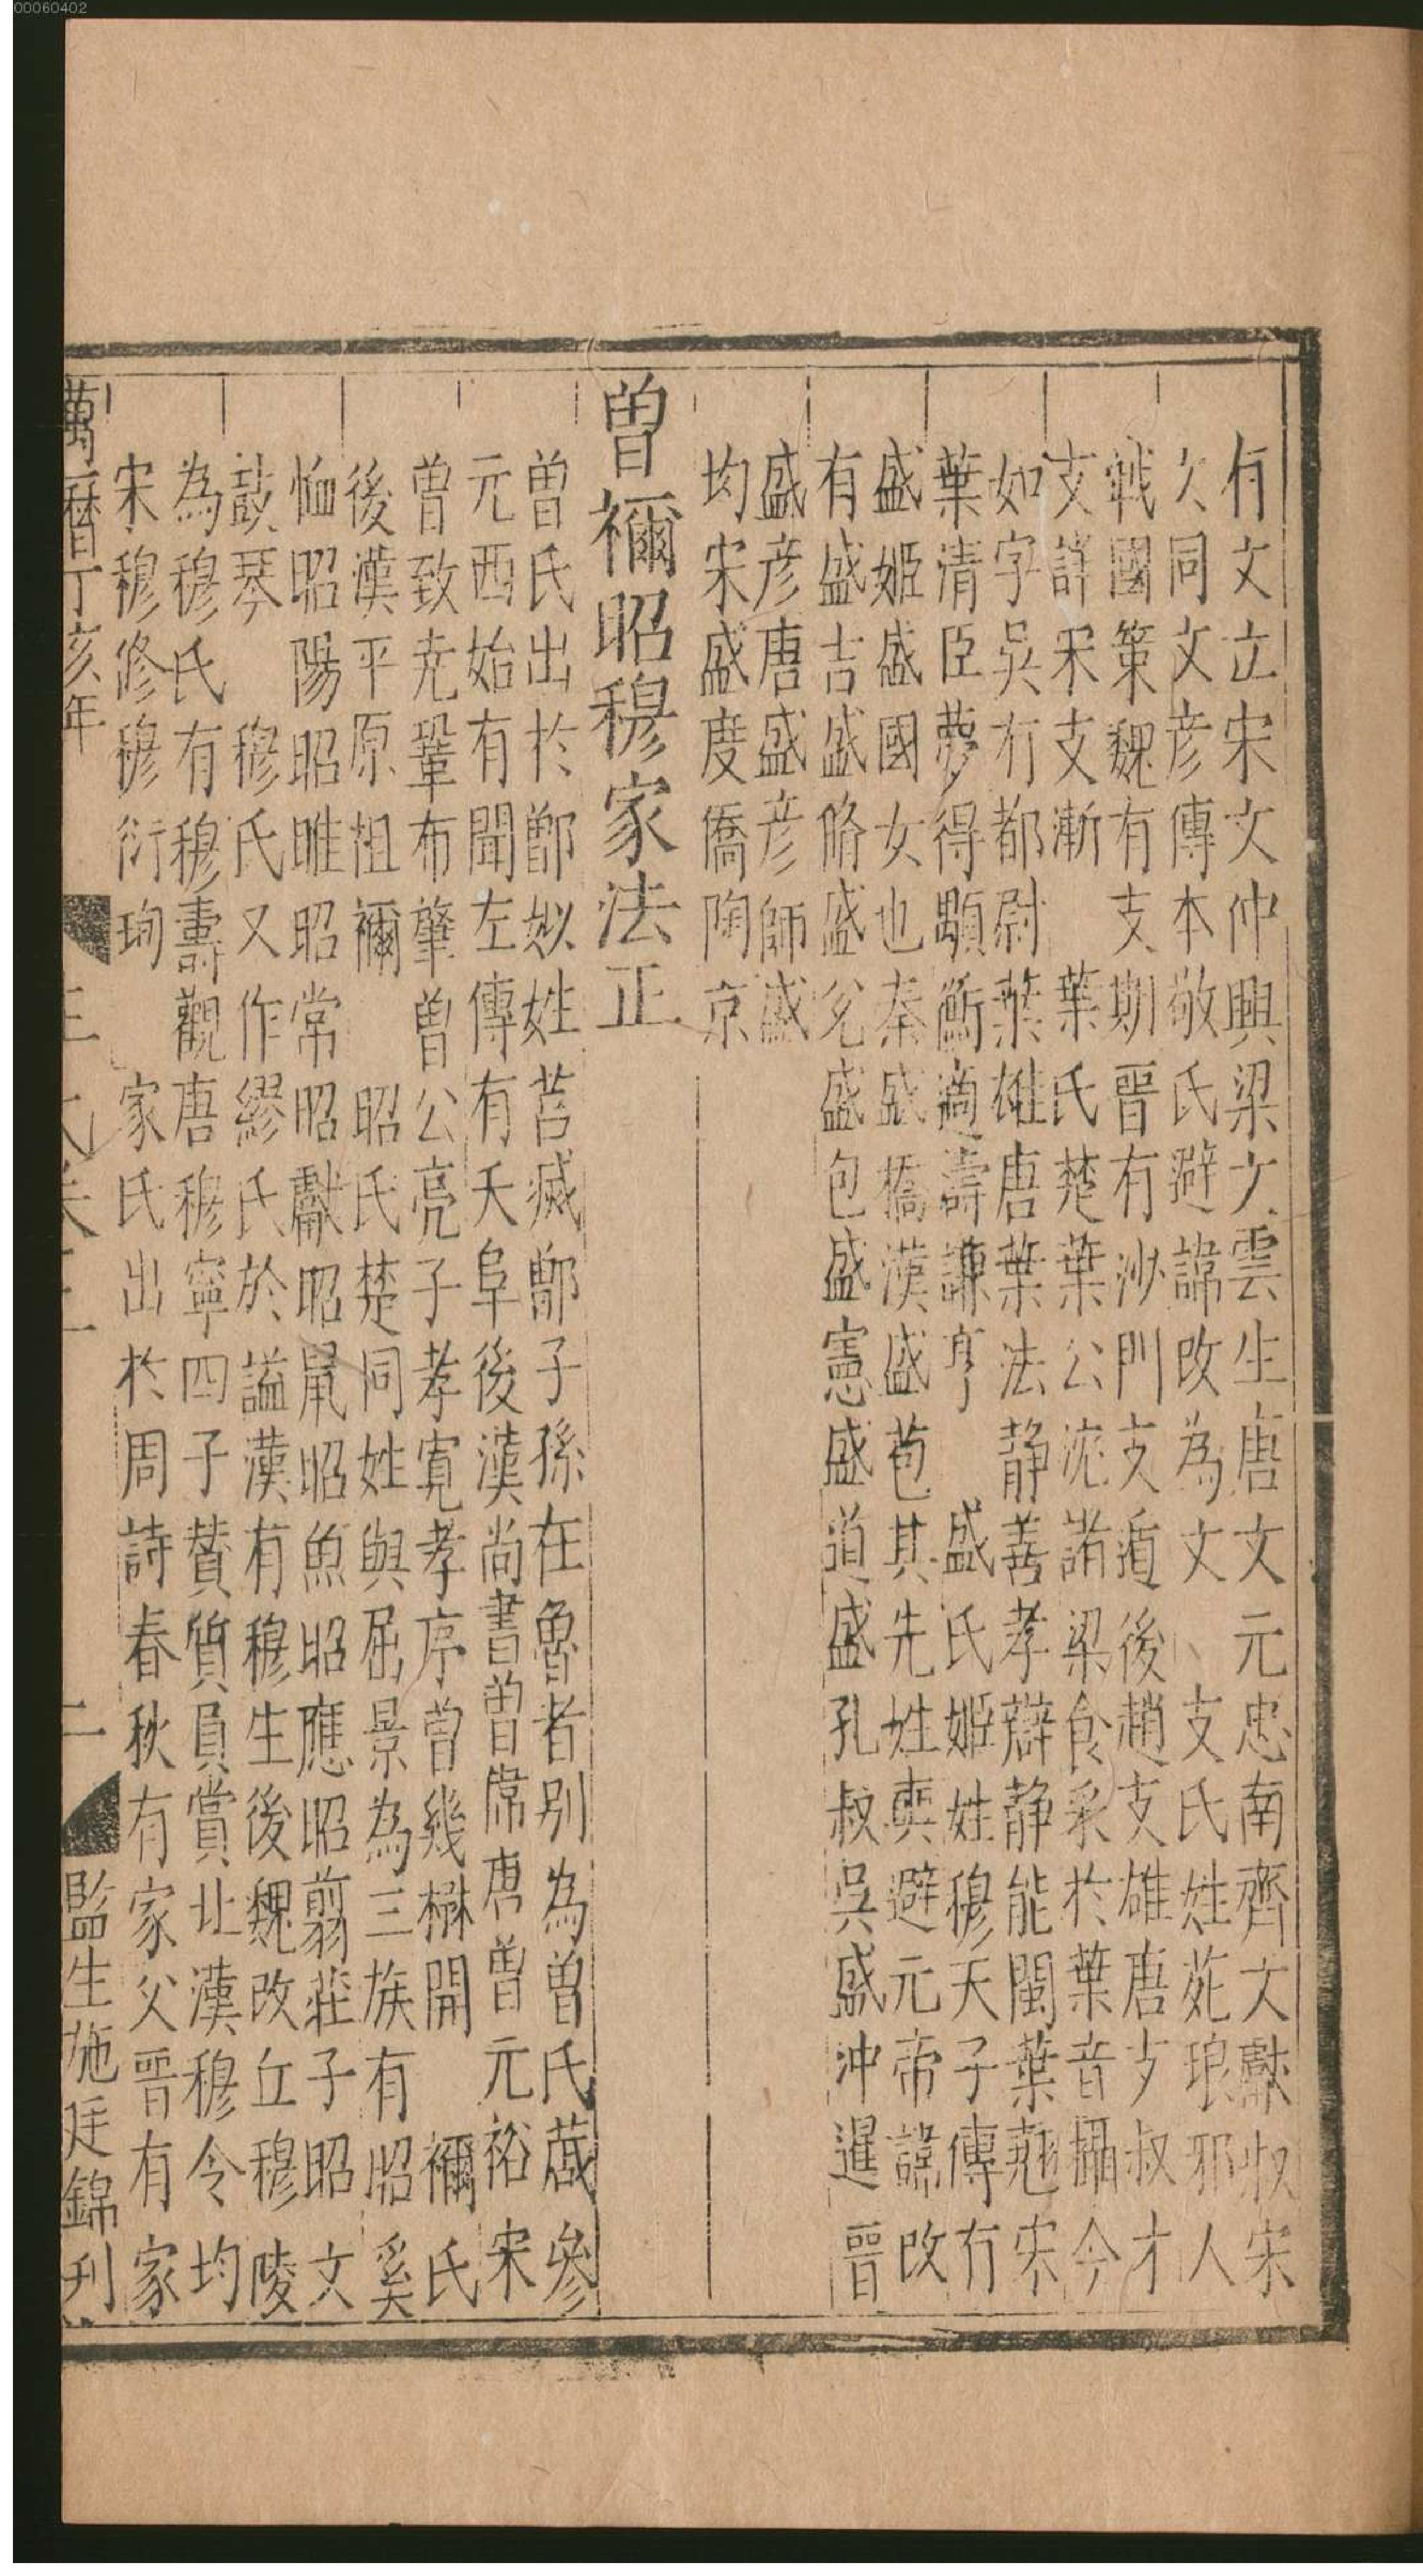 00060402
有文立宋文仲興梁文雲生唐文元忠南齊文獻叔宋
文同文彦傳本敬氏避諱改為文　支氏姓苑琅邪人
戰國策魏有支期晉有沙門支遁後趙支雄唐支叔才
支詳宋支漸　葉氏楚葉公沈諸梁食采於葉音攝今
如字吳有都尉葉雄唐葉法静善孝辯静能閩葉翹宋
葉清臣夢得顒衡適濤謙亨　盛氏姬姓穆天子傳有
盛姬盛國女也秦盛橋漢盛苞其先姓奭避元帝諱改
有盛吉盛脩盛兊盛包盛憲盛道盛孔叔吳盛冲暹晉
盛彦唐盛彦師盛
均宋盛度僑陶京
曽禰昭穆家法正
曽氏出於鄫姒姓莒滅鄫子孫在魯者别為曽氏蒧參
元西始有聞左傳有夭阜後漢尚書曽席唐曽元裕宋
曽致尭鞏布肇曽公亮子孝寛孝序曽幾楙開　禰氏
後漢平原祖禰　昭氏楚同姓與屈景為三族有昭奚
恤昭陽昭睢昭常昭獻昭鼠昭魚昭應昭翦莊子昭文
鼓琴　穆氏又作繆氏於謚漢有穆生後魏改丘穆陵
為穆氏有穆壽觀唐穆寧四子賛質員賞北漢穆令均
宋穆修穆衍珣　家氏出於周詩春秋有家父晉有家
萬曆丁亥年　三　二　監生施廷錦刋